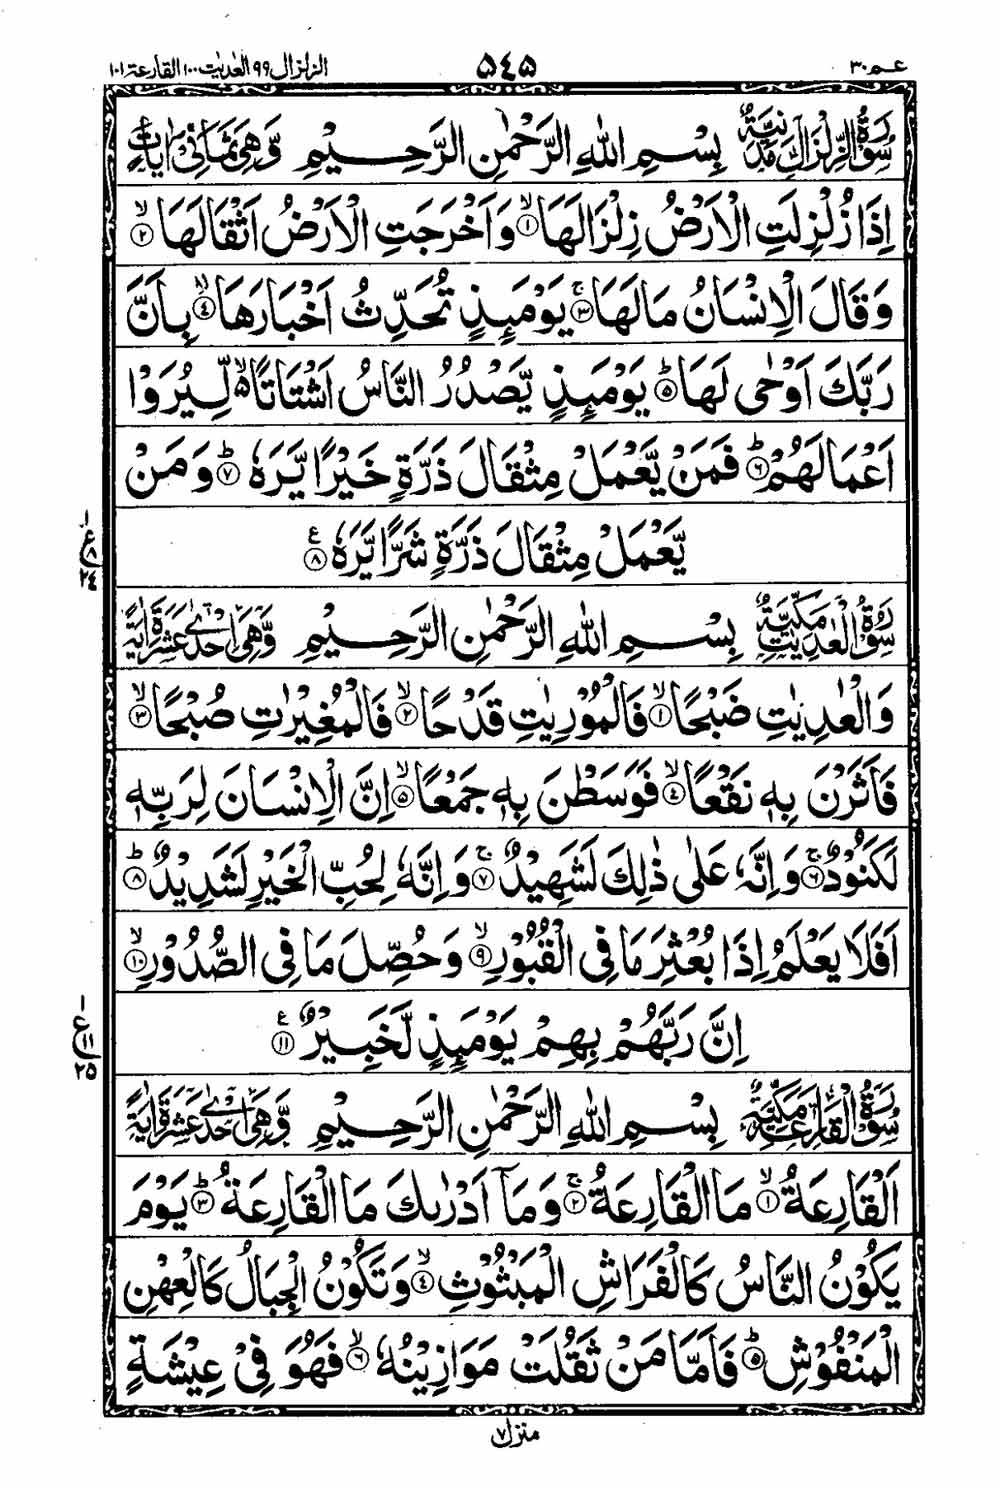 عم ۳۰ ۵۴۵ الزلزال ۹۹ العٰدیٰت ۱۰۰ القارعة ۱۰۱
سُوْرَةُ الزِّلْزَالِ مَدَنِيَّةٌ بِسْمِ اللّٰهِ الرَّحْمٰنِ الرَّحِيْمِ وَّهِىَ ثَمَانِىْ اٰيَاتٍ
اِذَا زُلْزِلَتِ الْاَرْضُ زِلْزَالَهَا ۙ‏﴿۱﴾ وَاَخْرَجَتِ الْاَرْضُ اَثْقَالَهَا ۙ‏﴿۲﴾
وَقَالَ الْاِنْسَانُ مَا لَهَا ۚ‏﴿۳﴾ يَوْمَئِذٍ تُحَدِّثُ اَخْبَارَهَا ۙ‏﴿۴﴾ بِاَنَّ
رَبَّكَ اَوْحٰى لَهَا ؕ‏﴿۵﴾ يَوْمَئِذٍ يَّصْدُرُ النَّاسُ اَشْتَاتًا ۙ۬ لِّيُرَوْا
اَعْمَالَهُمْ ؕ‏﴿۶﴾ فَمَنْ يَّعْمَلْ مِثْقَالَ ذَرَّةٍ خَيْرًا يَّرَهٗ ؕ‏﴿۷﴾ وَمَنْ
يَّعْمَلْ مِثْقَالَ ذَرَّةٍ شَرًّا يَّرَهٗ ﴿۸﴾ ع
۱ ع ۸ ۲۴
سُوْرَةُ الْعٰدِيٰتِ مَكِّيَّةٌ بِسْمِ اللّٰهِ الرَّحْمٰنِ الرَّحِيْمِ وَّهِىَ اِحْدٰى عَشْرَةَ اٰيَةً
وَالْعٰدِيٰتِ ضَبْحًا ۙ‏﴿۱﴾ فَالْمُوْرِيٰتِ قَدْحًا ۙ‏﴿۲﴾ فَالْمُغِيْرٰتِ صُبْحًا ۙ‏﴿۳﴾
فَاَثَرْنَ بِهٖ نَقْعًا ۙ‏﴿۴﴾ فَوَسَطْنَ بِهٖ جَمْعًا ۙ‏﴿۵﴾ اِنَّ الْاِنْسَانَ لِرَبِّهٖ
لَكَنُوْدٌ ۚ‏﴿۶﴾ وَاِنَّهٗ عَلٰى ذٰلِكَ لَشَهِيْدٌ ۚ‏﴿۷﴾ وَاِنَّهٗ لِحُبِّ الْخَيْرِ لَشَدِيْدٌ ؕ‏﴿۸﴾
اَفَلَا يَعْلَمُ اِذَا بُعْثِرَ مَا فِى الْقُبُوْرِ ۙ‏﴿۹﴾ وَحُصِّلَ مَا فِى الصُّدُوْرِ ۙ‏﴿۱۰﴾
اِنَّ رَبَّهُمْ بِهِمْ يَوْمَئِذٍ لَّخَبِيْرٌ ﴿۱۱﴾ ع
۱ ع ۱۱ ۲۵
سُوْرَةُ الْقَارِعَةِ مَكِّيَّةٌ بِسْمِ اللّٰهِ الرَّحْمٰنِ الرَّحِيْمِ وَّهِىَ اِحْدٰى عَشْرَةَ اٰيَةً
اَلْقَارِعَةُ ۙ‏﴿۱﴾ مَا الْقَارِعَةُ ۚ‏﴿۲﴾ وَمَاۤ اَدْرٰٮكَ مَا الْقَارِعَةُ ؕ‏﴿۳﴾ يَوْمَ
يَكُوْنُ النَّاسُ كَالْفَرَاشِ الْمَبْثُوْثِ ۙ‏﴿۴﴾ وَتَكُوْنُ الْجِبَالُ كَالْعِهْنِ
الْمَنْفُوْشِ ؕ‏﴿۵﴾ فَاَمَّا مَنْ ثَقُلَتْ مَوَازِيْنُهٗ ۙ‏﴿۶﴾ فَهُوَ فِىْ عِيْشَةٍ
منزل ۷